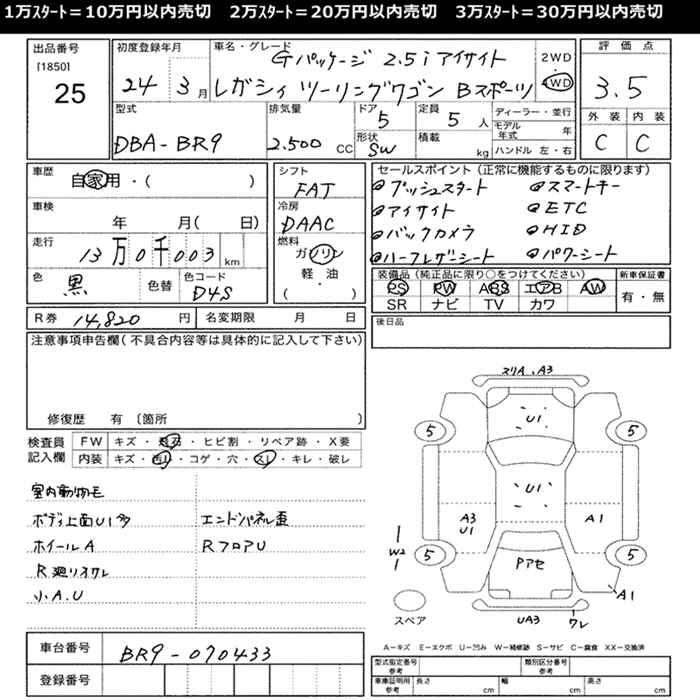 1万ｽﾀｰﾄ＝10万円以内売切　2万ｽﾀｰﾄ＝20万円以内売切　3万ｽﾀｰﾄ＝30万円以内売切
出品番号
[1850]
25
初度登録年月
24 3月
車名・グレード
Gパッケージ 2.5i アイサイト
レガシィ ツーリングワゴン Bスポーツ
2WD
4WD
評価点
3.5
外装 内装
C C
型式
DBA-BR9
排気量
2.500 CC
ドア
5
形状
SW
定員
5 人
積載
kg
ディーラー・並行
モデル年式 年
ハンドル 左・右
車歴
自家用・( )
車検
年 月( 日)
走行
13万0千003 km
色
黒
色替
色コード
D4S
シフト
FAT
冷房
DAAC
燃料
ガソリン
軽・油
( )
セールスポイント(正常に機能するものに限ります)
プッシュスタート スマートキー
アイサイト ETC
バックカメラ HID
ハーフレザーシート パワーシート
装備品(純正品に限り○をつけてください)
PS PW ABS エアB AW
SR ナビ TV カワ
新車保証書
有・無
R券 14,820 円
名変期限 月 日
後日品
注意事項申告欄(不具合内容等は具体的に記入して下さい)
修復歴 有 〔箇所 〕
検査員
記入欄
FW キズ・飛石・ヒビ割・リペア跡・X要
内装 キズ・汚れ・コゲ・穴・スレ・キレ・破レ
室内動物毛
ボディ上面U1多 エンドパネル歪
ホイールA RフロアU
R廻リオクレ
小A.U
スリA、A3
U1
5
5
U1
A3
U1
A1
W2
5
5
Pアセ
A1
スペア
UA3
ワレ
車台番号
BR9-070433
登録番号
A－キズ E－エクボ U－凹み W－補修跡 S－サビ C－腐食 XX－交換済
型式指定番号
参考
類別区分番号
参考
車庫証明用
参考
長さ cm
幅 cm
高さ cm